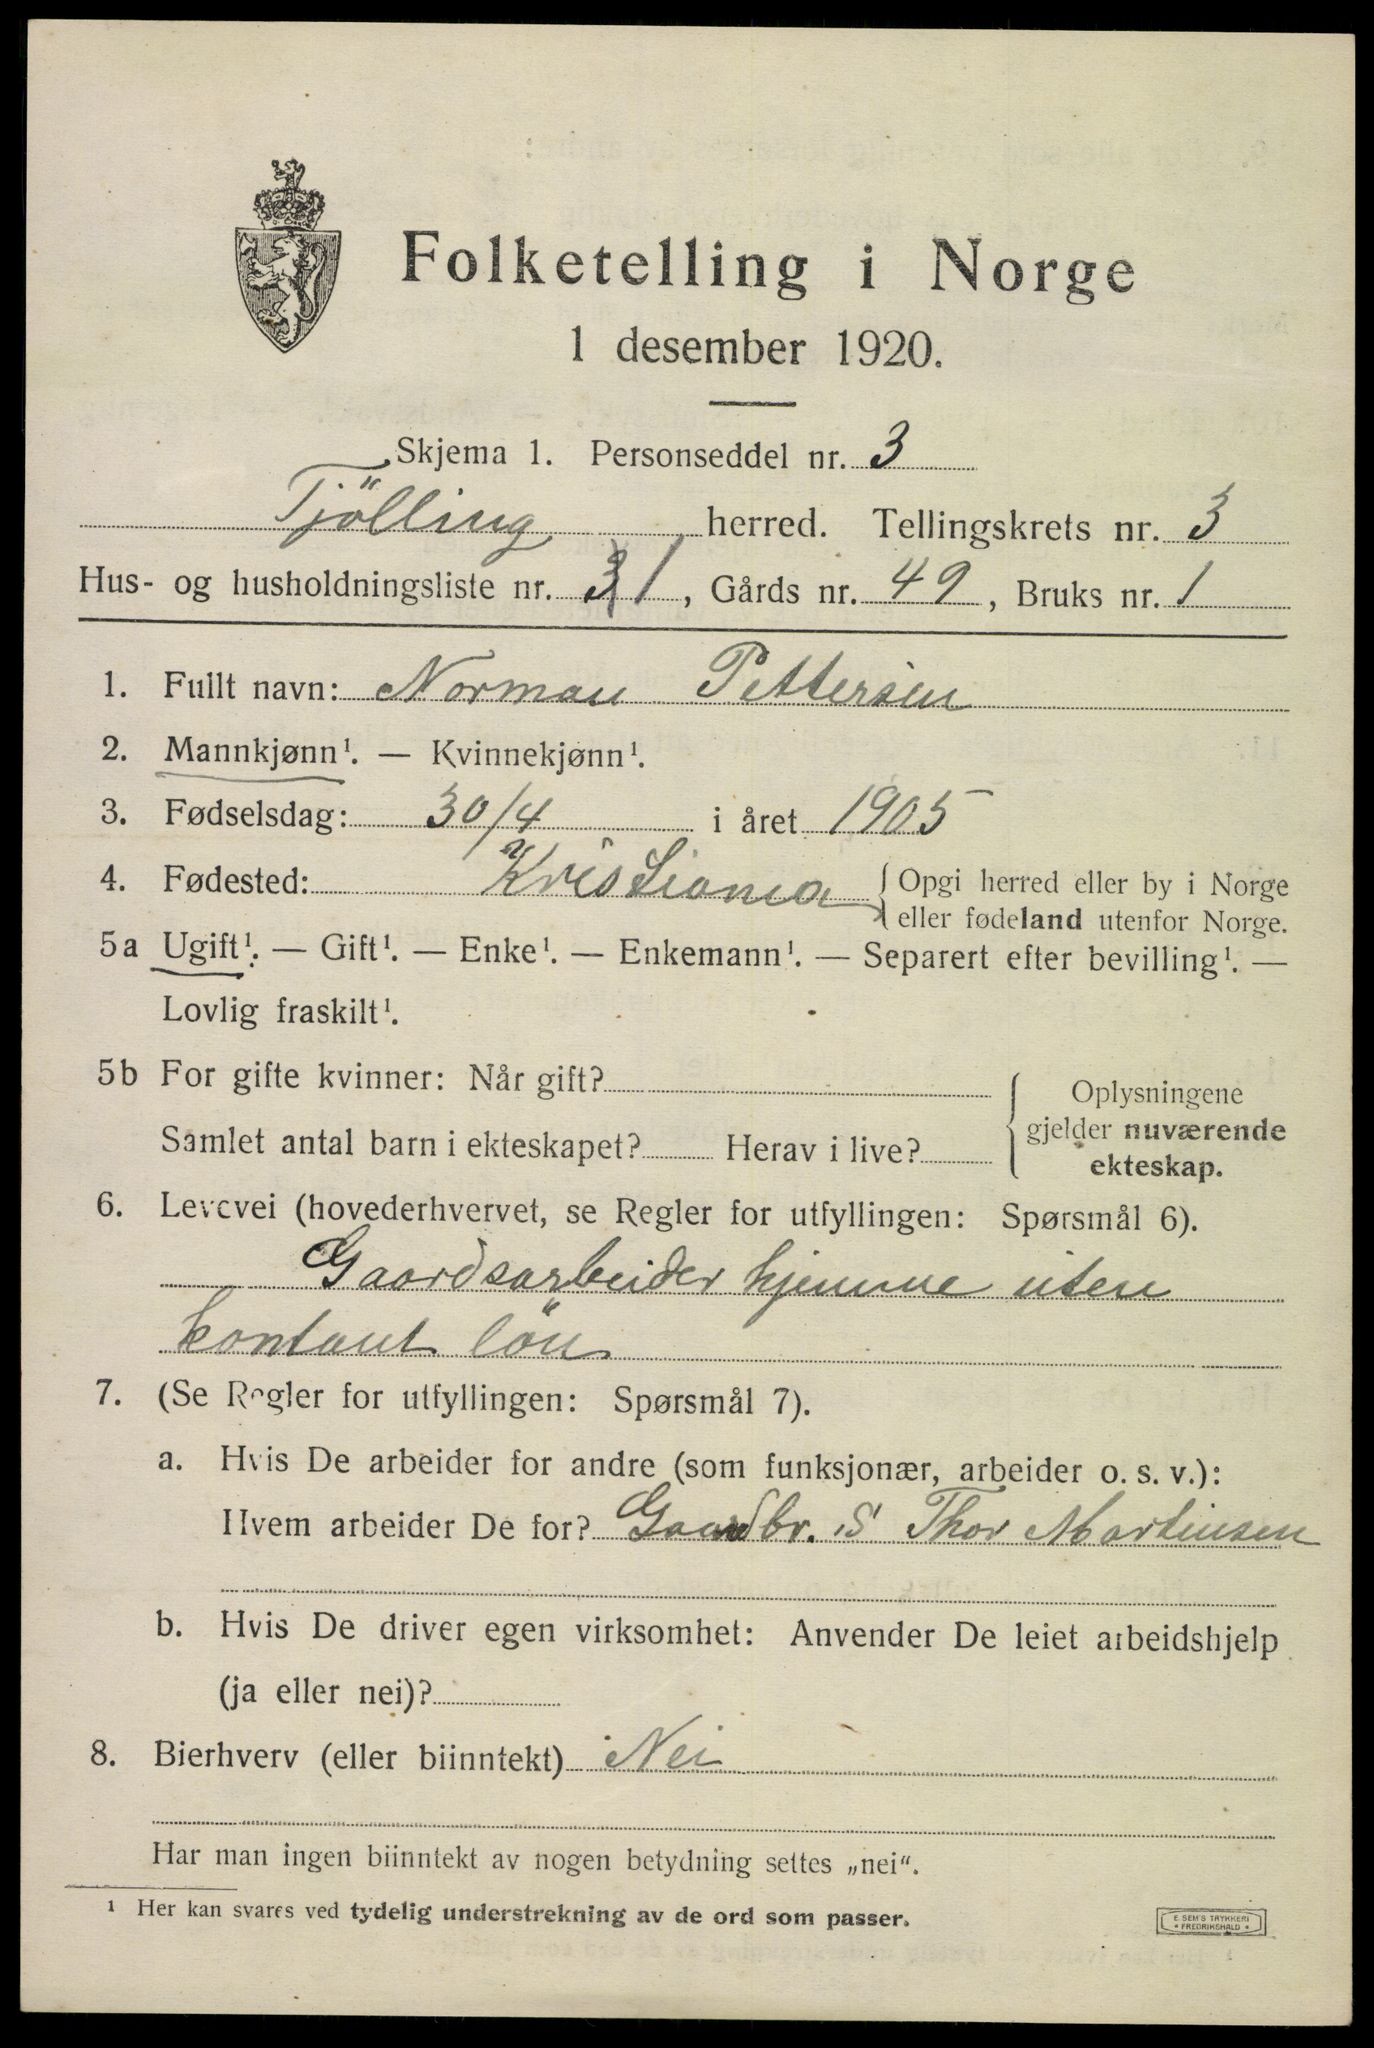 Folketelling i Norge
1 desember 1920.
Skjema 1. Personseddel nr. 3
Tjölling herred. Tellingskrets nr. 3
Hus- og husholdningsliste nr. 31, Gårds nr. 49, Bruks nr. 1
1. Fullt navn: Norman Pettersen
2. Mannkjønn¹. — Kvinnekjønn¹.
3. Fødselsdag: 30/4 i året 1905
4. Fødested: Kristiania { Opgi herred eller by i Norge
eller fødeland utenfor Norge.
5a Ugift¹. — Gift¹. — Enke¹. — Enkemann¹. — Separert efter bevilling¹. —
Lovlig fraskilt¹.
5b For gifte kvinner: Når gift?
Samlet antal barn i ekteskapet? Herav i live?
Oplysningene
gjelder nuværende
ekteskap.
6. Levevei (hovederhvervet, se Regler for utfyllingen: Spørsmål 6).
Gaardsarbeider hjemme uten
kontant lön
7. (Se Regler for utfyllingen: Spørsmål 7).
a. Hvis De arbeider for andre (som funksjonær, arbeider o. s. v.):
Hvem arbeider De for? Gaardbr. S Thor Martinsen
b. Hvis De driver egen virksomhet: Anvender De leiet arbeidshjelp
(ja eller nei)?
8. Bierhverv (eller biinntekt) Nei
Har man ingen biinntekt av nogen betydning settes „nei“.
¹ Her kan svares ved tydelig understrekning av de ord som passer.
E SEM'S TRYKKERI
* FREDRIKSHALD *